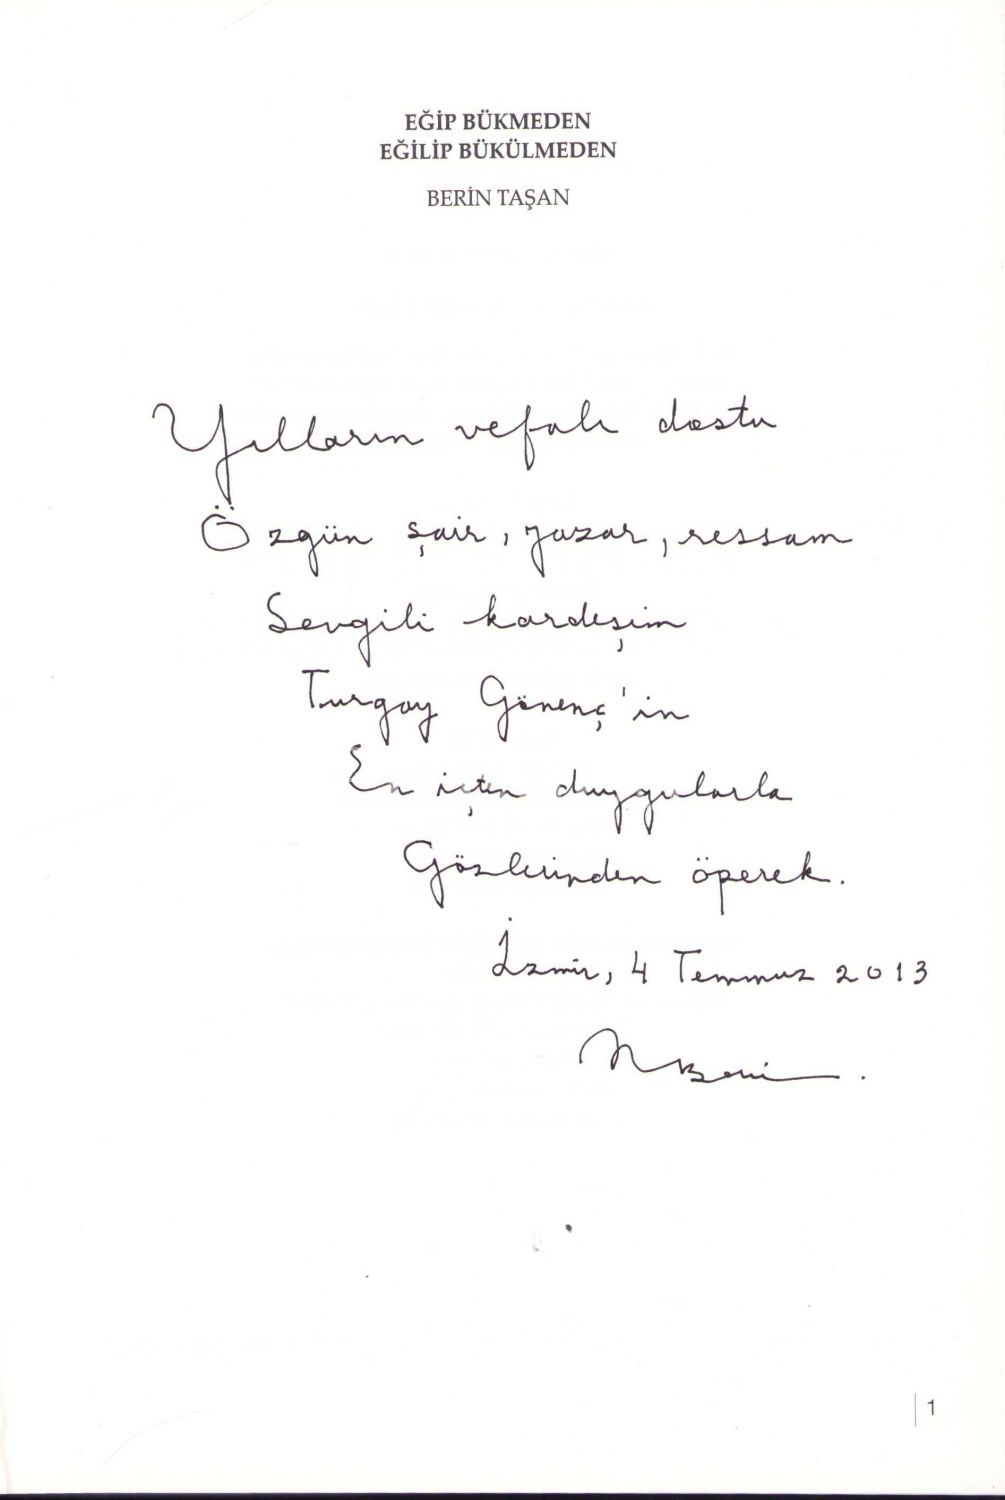 EĞİP BÜKMEDEN
EĞİLİP BÜKÜLMEDEN
BERİN TAŞAN
Yılların vefalı dostu
Özgün şair, yazar, ressam
Sevgili kardeşim
Turgay Gönenç'in
En içten duygularla
Gözlerinden öperek.
İzmir, 4 Temmuz 2013
1